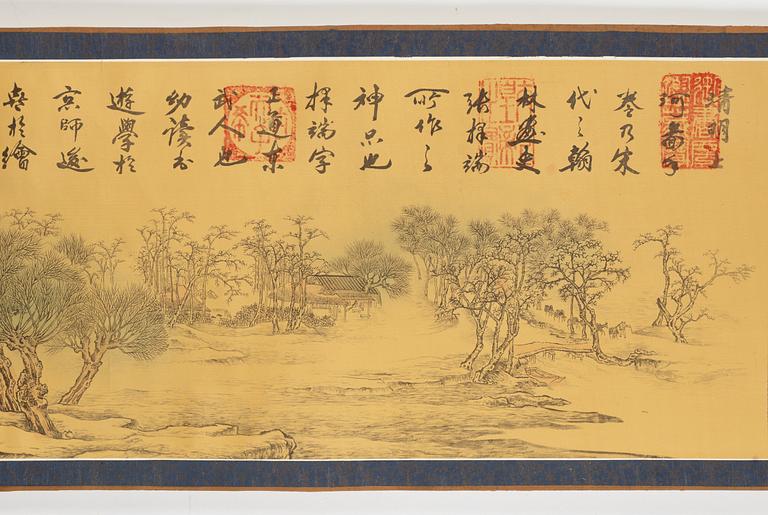 清明上
河圖手
卷乃宋
代之翰
林畫史
張擇端
所作之
神品也
擇端字
正道東
武人也
幼讀書
遊學於
京師後
喜於繪